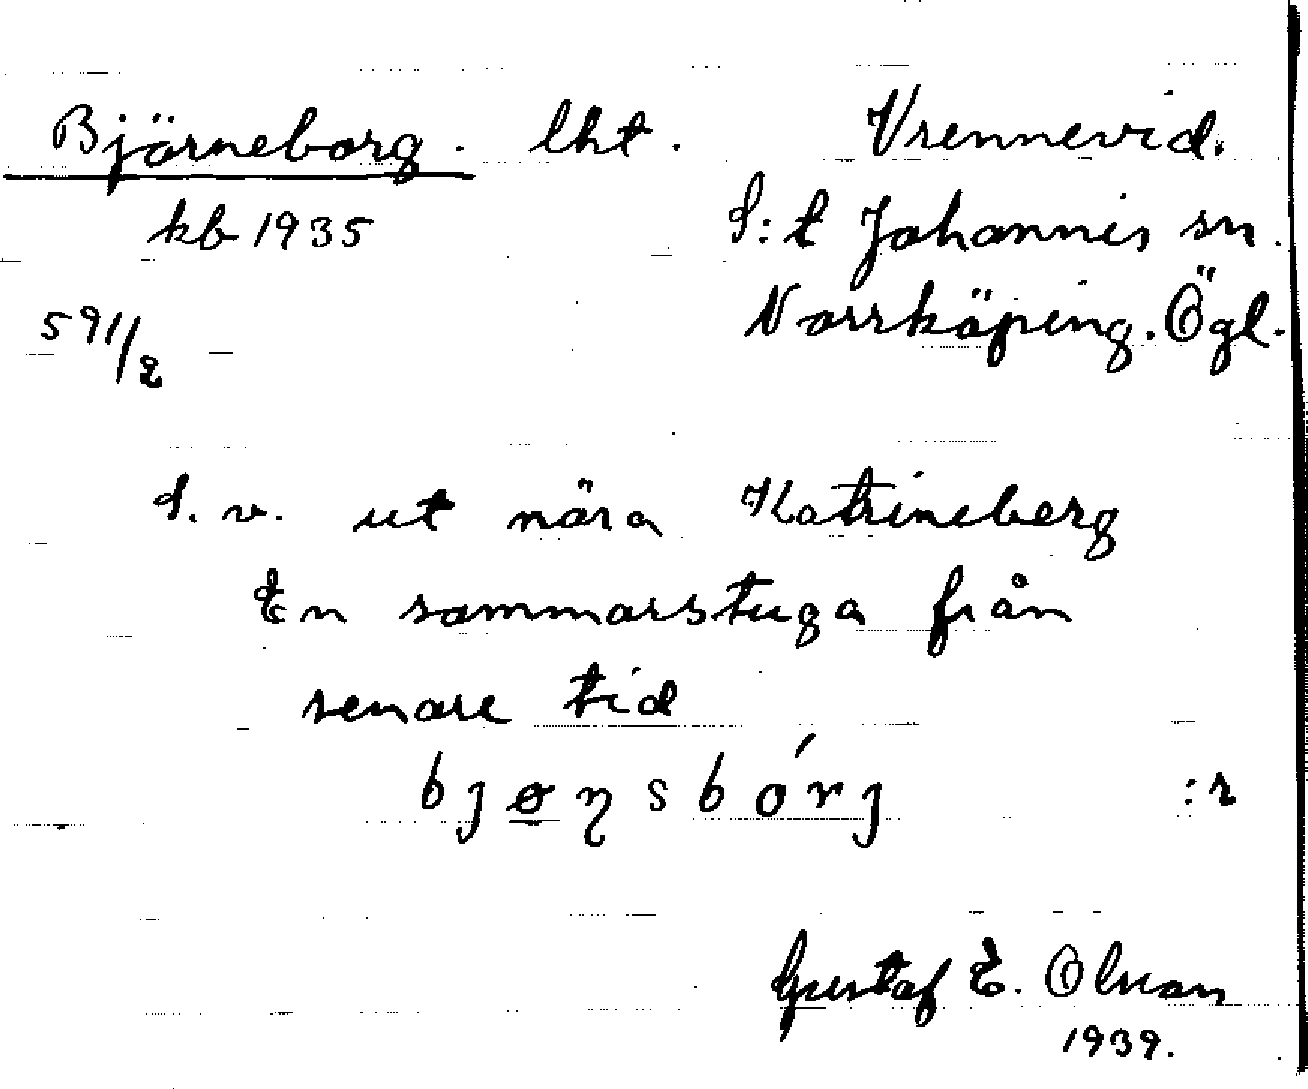 Björneborg. lht. Vrennevid.
kb 1935 S:t Johannis sn.
591/2 Norrköping. Ögl.
S. v. ut nära Katrineberg
En sommarstuga från
senare tid
bjøꞃsbórj :r
Gustaf E. Olson
1939.